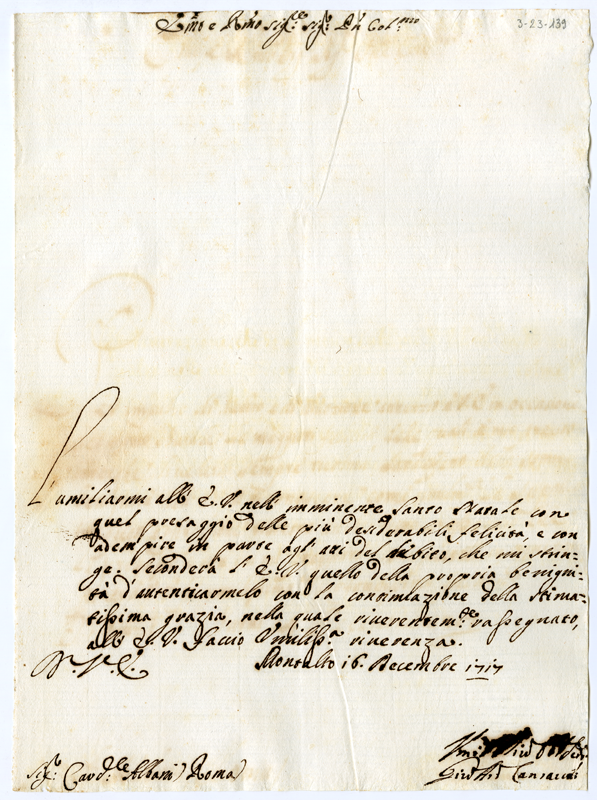 Em̃o e Rm̃o Sig.re Sig.r Pn̄ Col.mo
3-23-139
L'umiliarmi all' E.V. nell' imminente Santo Natale con
quel presaggio delle più desiderabili felicità, è con
adempire in parte agl' atti del debito, che mi strin-
ge. Seconderà l' E.V. quello della propria benigni-
tà d'autenticarmelo con la continuazione della stima-
tissima grazia, nella quale riverentem.te rassegnato,
all' E.V. faccio umiliss.a riverenza.
Montalto 16. Decembre 1717
Sig.r Card.le Albani Roma